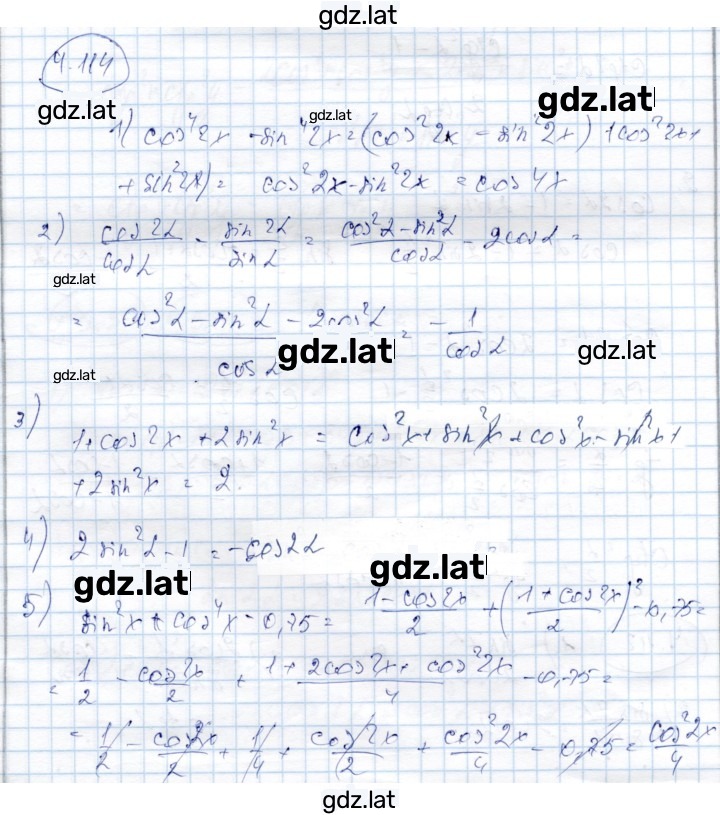 gdz.lat
4.114
gdz.lat
gdz.lat
gdz.lat
1) cos⁴2x - sin⁴2x = (cos²2x - sin²2x) + cos²2x +
+ sin²2x) = cos²2x - sin²2x = cos4x
2) cos2α/cosα - sin2α/sinα = (cos²α - sin²α)/cosα - 2cosα =
gdz.lat
= (cos²α - sin²α - 2cos²α)/cosα = -1/cosα
gdz.lat
gdz.lat
gdz.lat
3)
1 + cos2x + 2sin²x = cos²x + sin²x + cos²x - sin²x +
+ 2sin²x = 2.
4) 2sin²α - 1 = -cos2α
gdz.lat
gdz.lat
5) sin²x + cos⁴x - 0,75 = (1 - cos2x)/2 + ((1 + cos2x)/2)² - 0,75 =
= 1/2 - cos2x/2 + (1 + 2cos2x + cos²2x)/4 - 0,75 =
= 1/2 - cos2x/2 + 1/4 + cos2x/2 + cos²2x/4 - 0,75 = cos²2x/4
gdz.lat